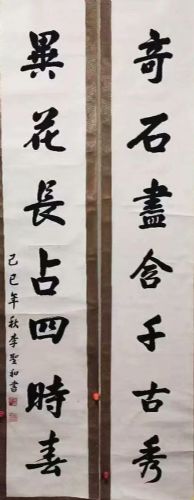 奇石盡含千古秀
異花長占四時春
己巳年秋李聖和書